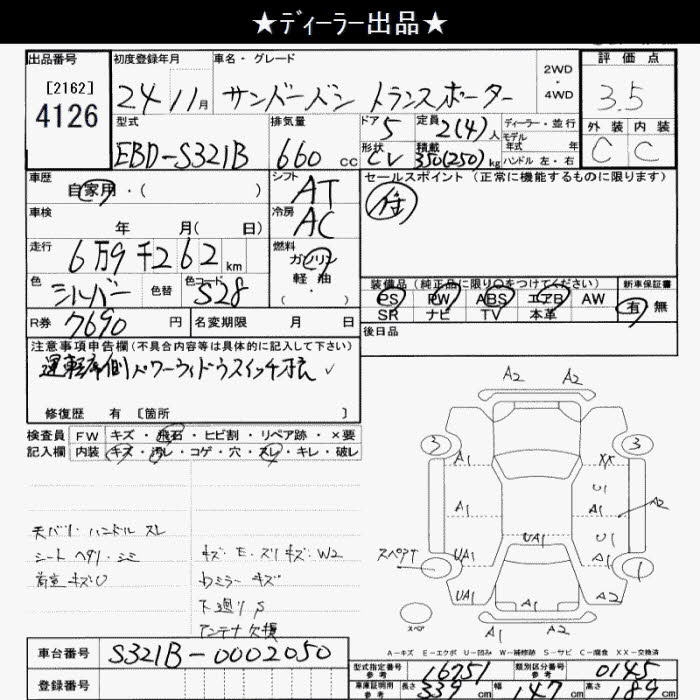 ★ディーラー出品★
出品番号 初度登録年月 車名・グレード 2WD・4WD 評価点
[2162]
4126
24 11月 サンバーバン トランスポーター 3.5
型式 排気量 ドア 定員 ディーラー・並行 外装 内装
EBD-S321B 660cc 5 2(4)人 モデル年式 年 C C
形状 積載 ハンドル 左・右
CV 350(250)kg
車歴 シフト セールスポイント (正常に機能するものに限ります)
自家用・( ) AT
車検 冷房
年 月( 日) AC
走行 燃料
6万9千262km ガソリン
色 色替 色コード 軽油
シルバー S28 ( ・ )
装備品(純正品に限り○をつけてください) 新車保証書
PS PW ABS エアB AW 有 無
SR ナビ TV 本革
R券 7690円 名変期限 月 日 後日品
注意事項申告欄(不具合内容等は具体的に記入して下さい)
運転席側パワーウィンドウスイッチ
修復歴 有 [箇所 ]
検査員 FW キズ・飛石・ヒビ割・リペア跡・×要
記入欄 内装 キズ・汚レ・コゲ・穴・スレ・キレ・破レ
A2 A2
3 3
A1 XX
U1
A1 A1 A2
UA1 U1
スペアT UA1 A1
1
UA1 A1 A2 A2
スペア
ハンドル スレ
シート ヘタリ・シミ
荷室 キズU
キズ・E・スリキズ・W2
Wミラー キズ
下廻り S
アンテナ欠損
A-キズ E-エクボ U-凹み W-補修跡 S-サビ C-腐食 XX-交換済
車台番号 S321B-0002050
型式指定番号 参考 16751 類別区分番号 参考 0145
登録番号
車庫証明用 参考 長さ 339cm 幅 147cm 高さ 189cm